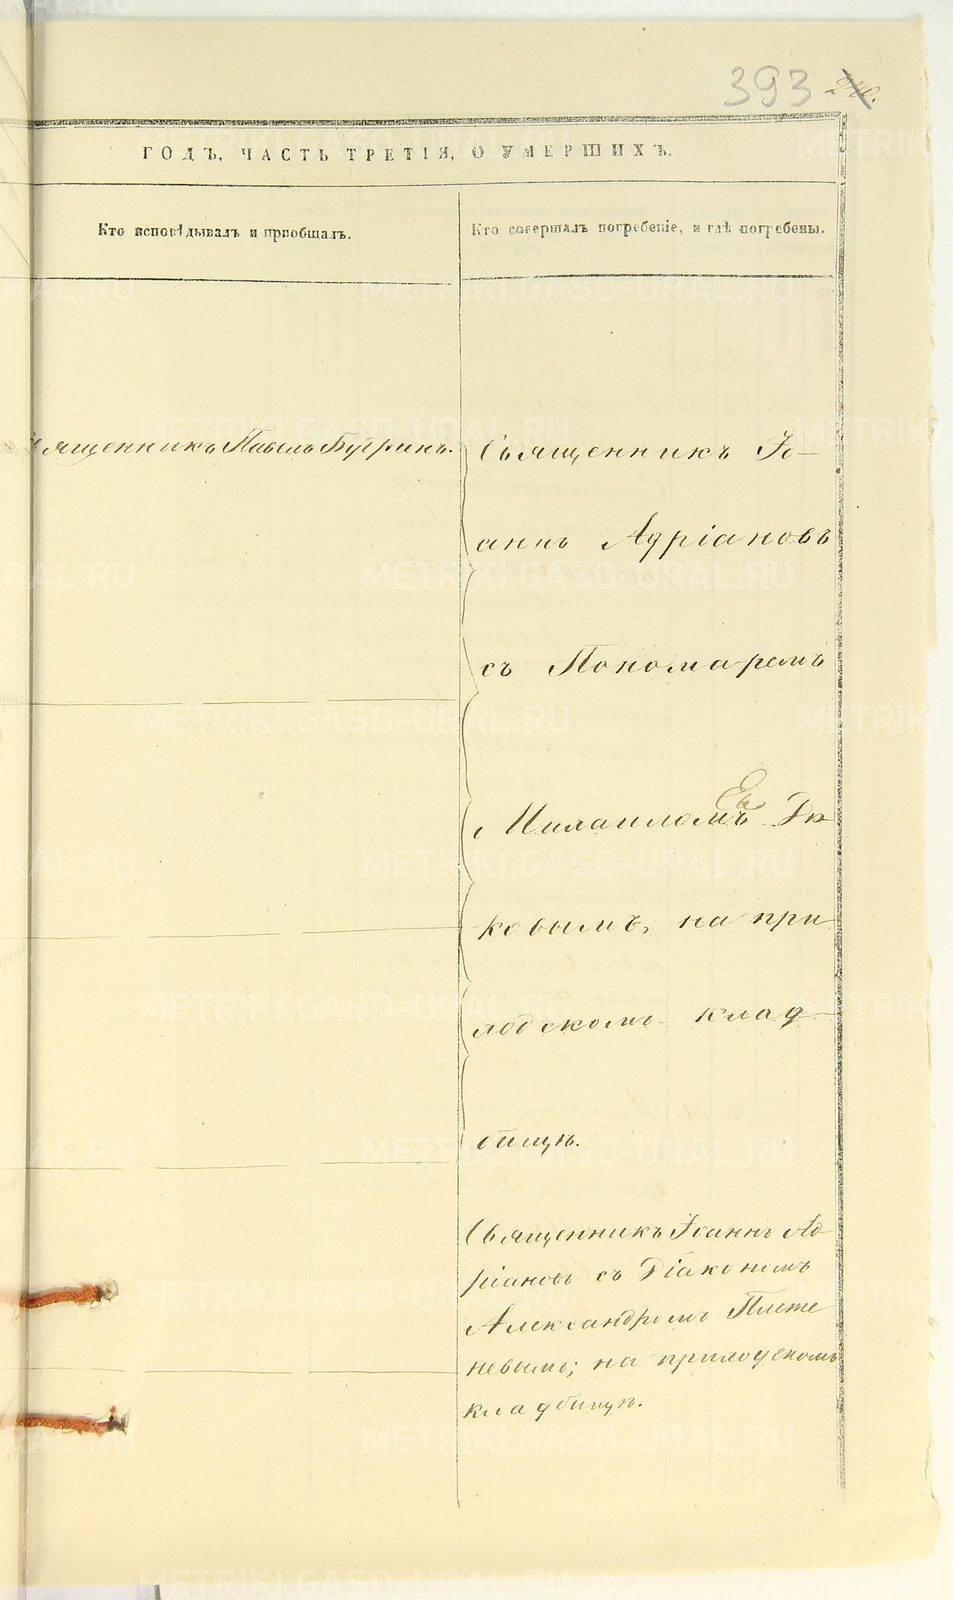 393
ГОДЪ, ЧАСТЬ ТРЕТІЯ, О УМЕРШИХЪ.
Кто исповѣдывалъ и пріобщалъ.
Кто совершалъ погребеніе, и гдѣ погребены.
Священникъ Павелъ Бугринъ.
Священникъ Іо-
аннъ Адріановъ
съ Пономаремъ
Михаиломъ
ковымъ, на при
ходскомъ клад-
бищѣ.
Священникъ Іоаннъ Ад
ріановъ съ Діакономъ
Александромъ Плете
невымъ; на приходскомъ
кладбищѣ.
METRIKI.GASO-URAL.RU